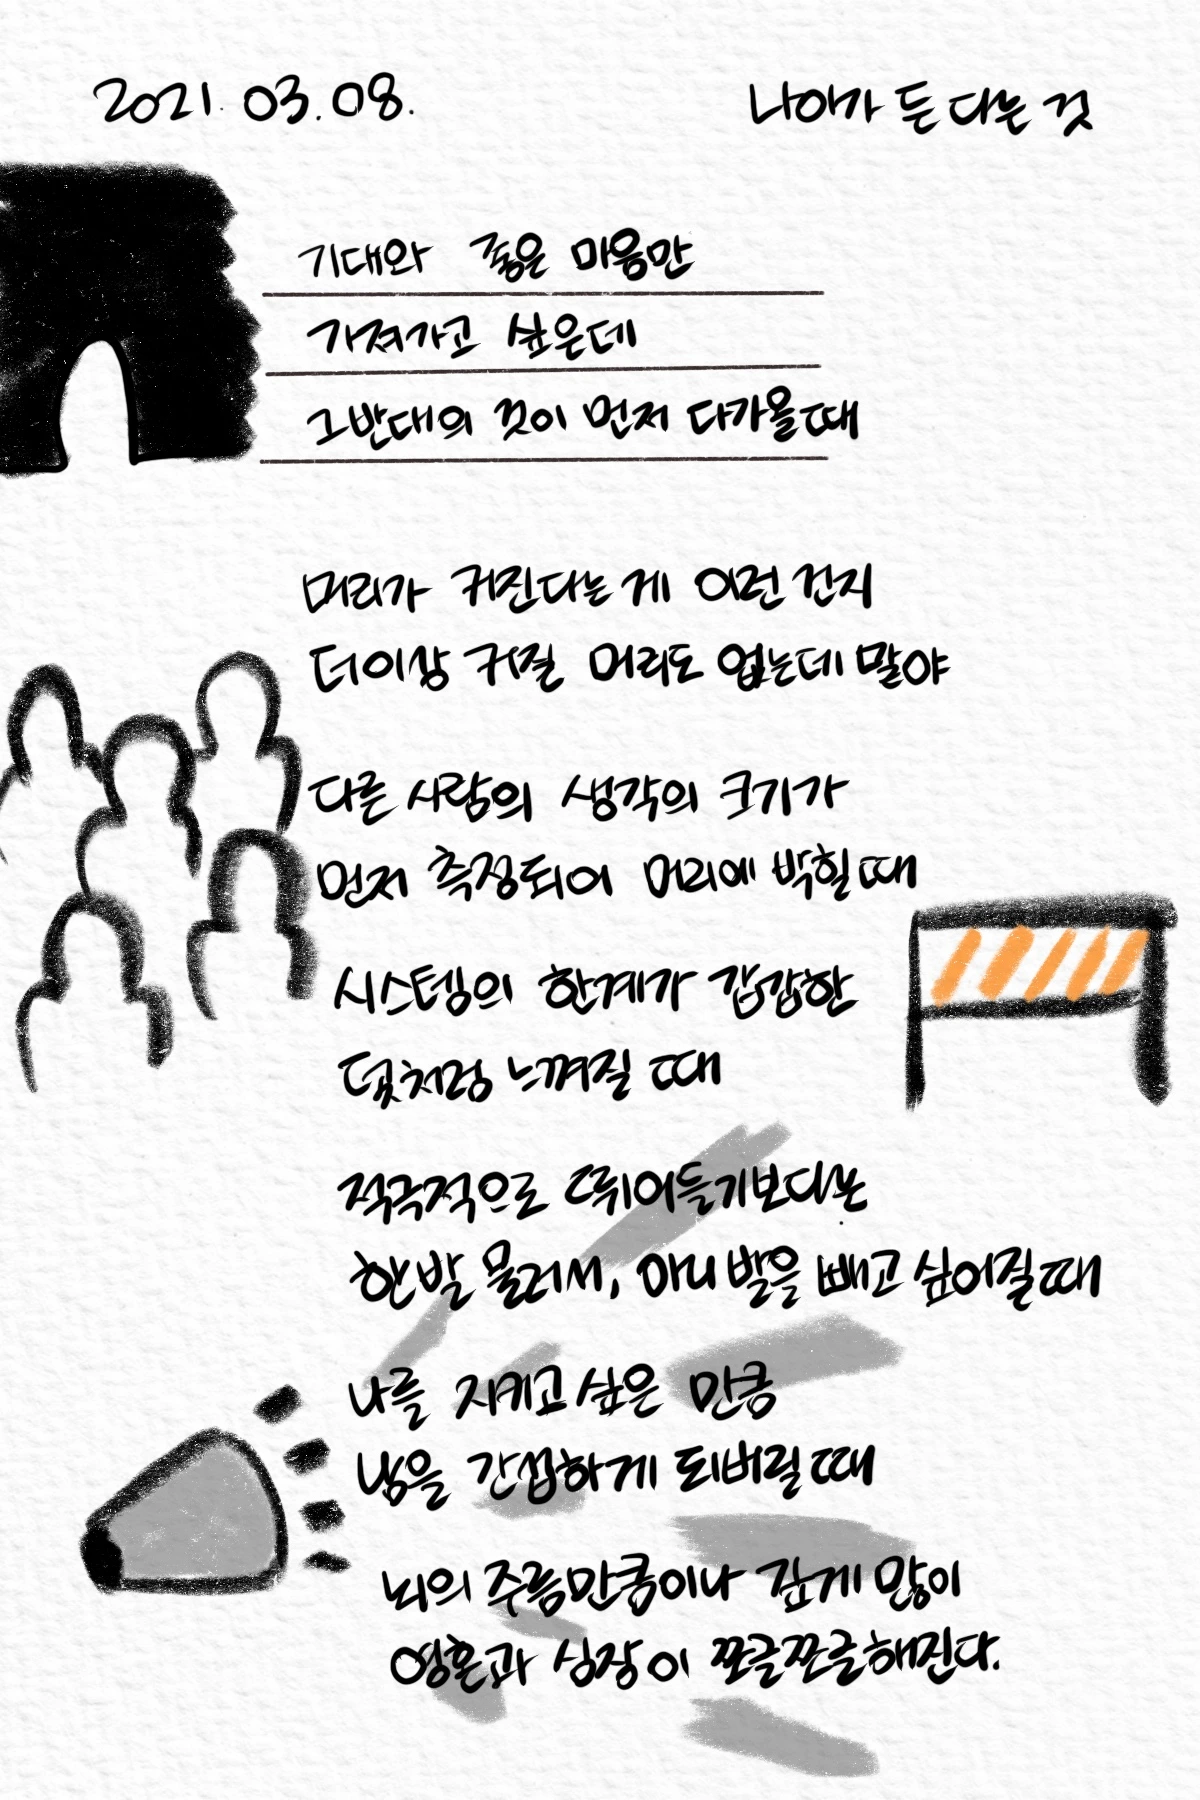 2021. 03. 08.
나이가 든다는 것
기대와 좋은 마음만
가져가고 싶은데
그 반대의 것이 먼저 다가올 때
머리가 커진다는 게 이런 건지
더이상 커질 머리도 없는데 말야
다른 사람의 생각의 크기가
먼저 측정되어 머리에 박힐 때
시스템의 한계가 갑갑한
덫처럼 느껴질 때
적극적으로 뛰어들기보다는
한발 물러서, 아니 발을 빼고 싶어질 때
나를 지키고 싶은 만큼
남을 간섭하게 되버릴 때
뇌의 주름만큼이나 깊게 많이
영혼과 심장이 쪼글쪼글해진다.